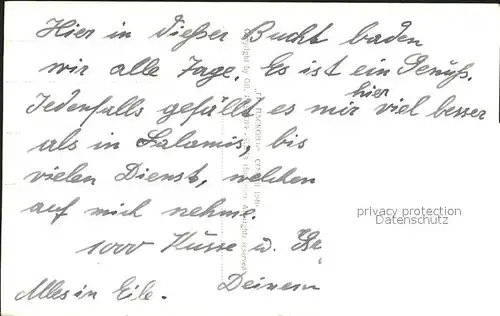 Hier in dieser Bucht baden
wir alle Tage. Es ist ein Genuß.
hier
Jedenfalls gefällt es mir viel besser
als in Salamis, bis
vielen Dienst, welchen
auf mich nehme.
1000 Küsse u.
Deinem
Alles in Eile.
privacy protection
Datenschutz